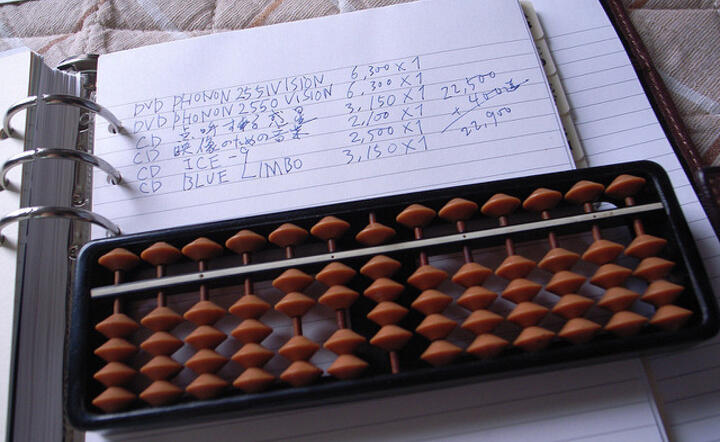 DVD PHONON 2551 VISION 6,300×1
DVD PHONON 2550 VISION 6,300×1
CD 点呼する惑星 3,150×1
CD 映像のための音楽 2,100×1
CD ICE-9 2,500×1
CD BLUE LIMBO 3,150×1
22,500
+ 400
22,900